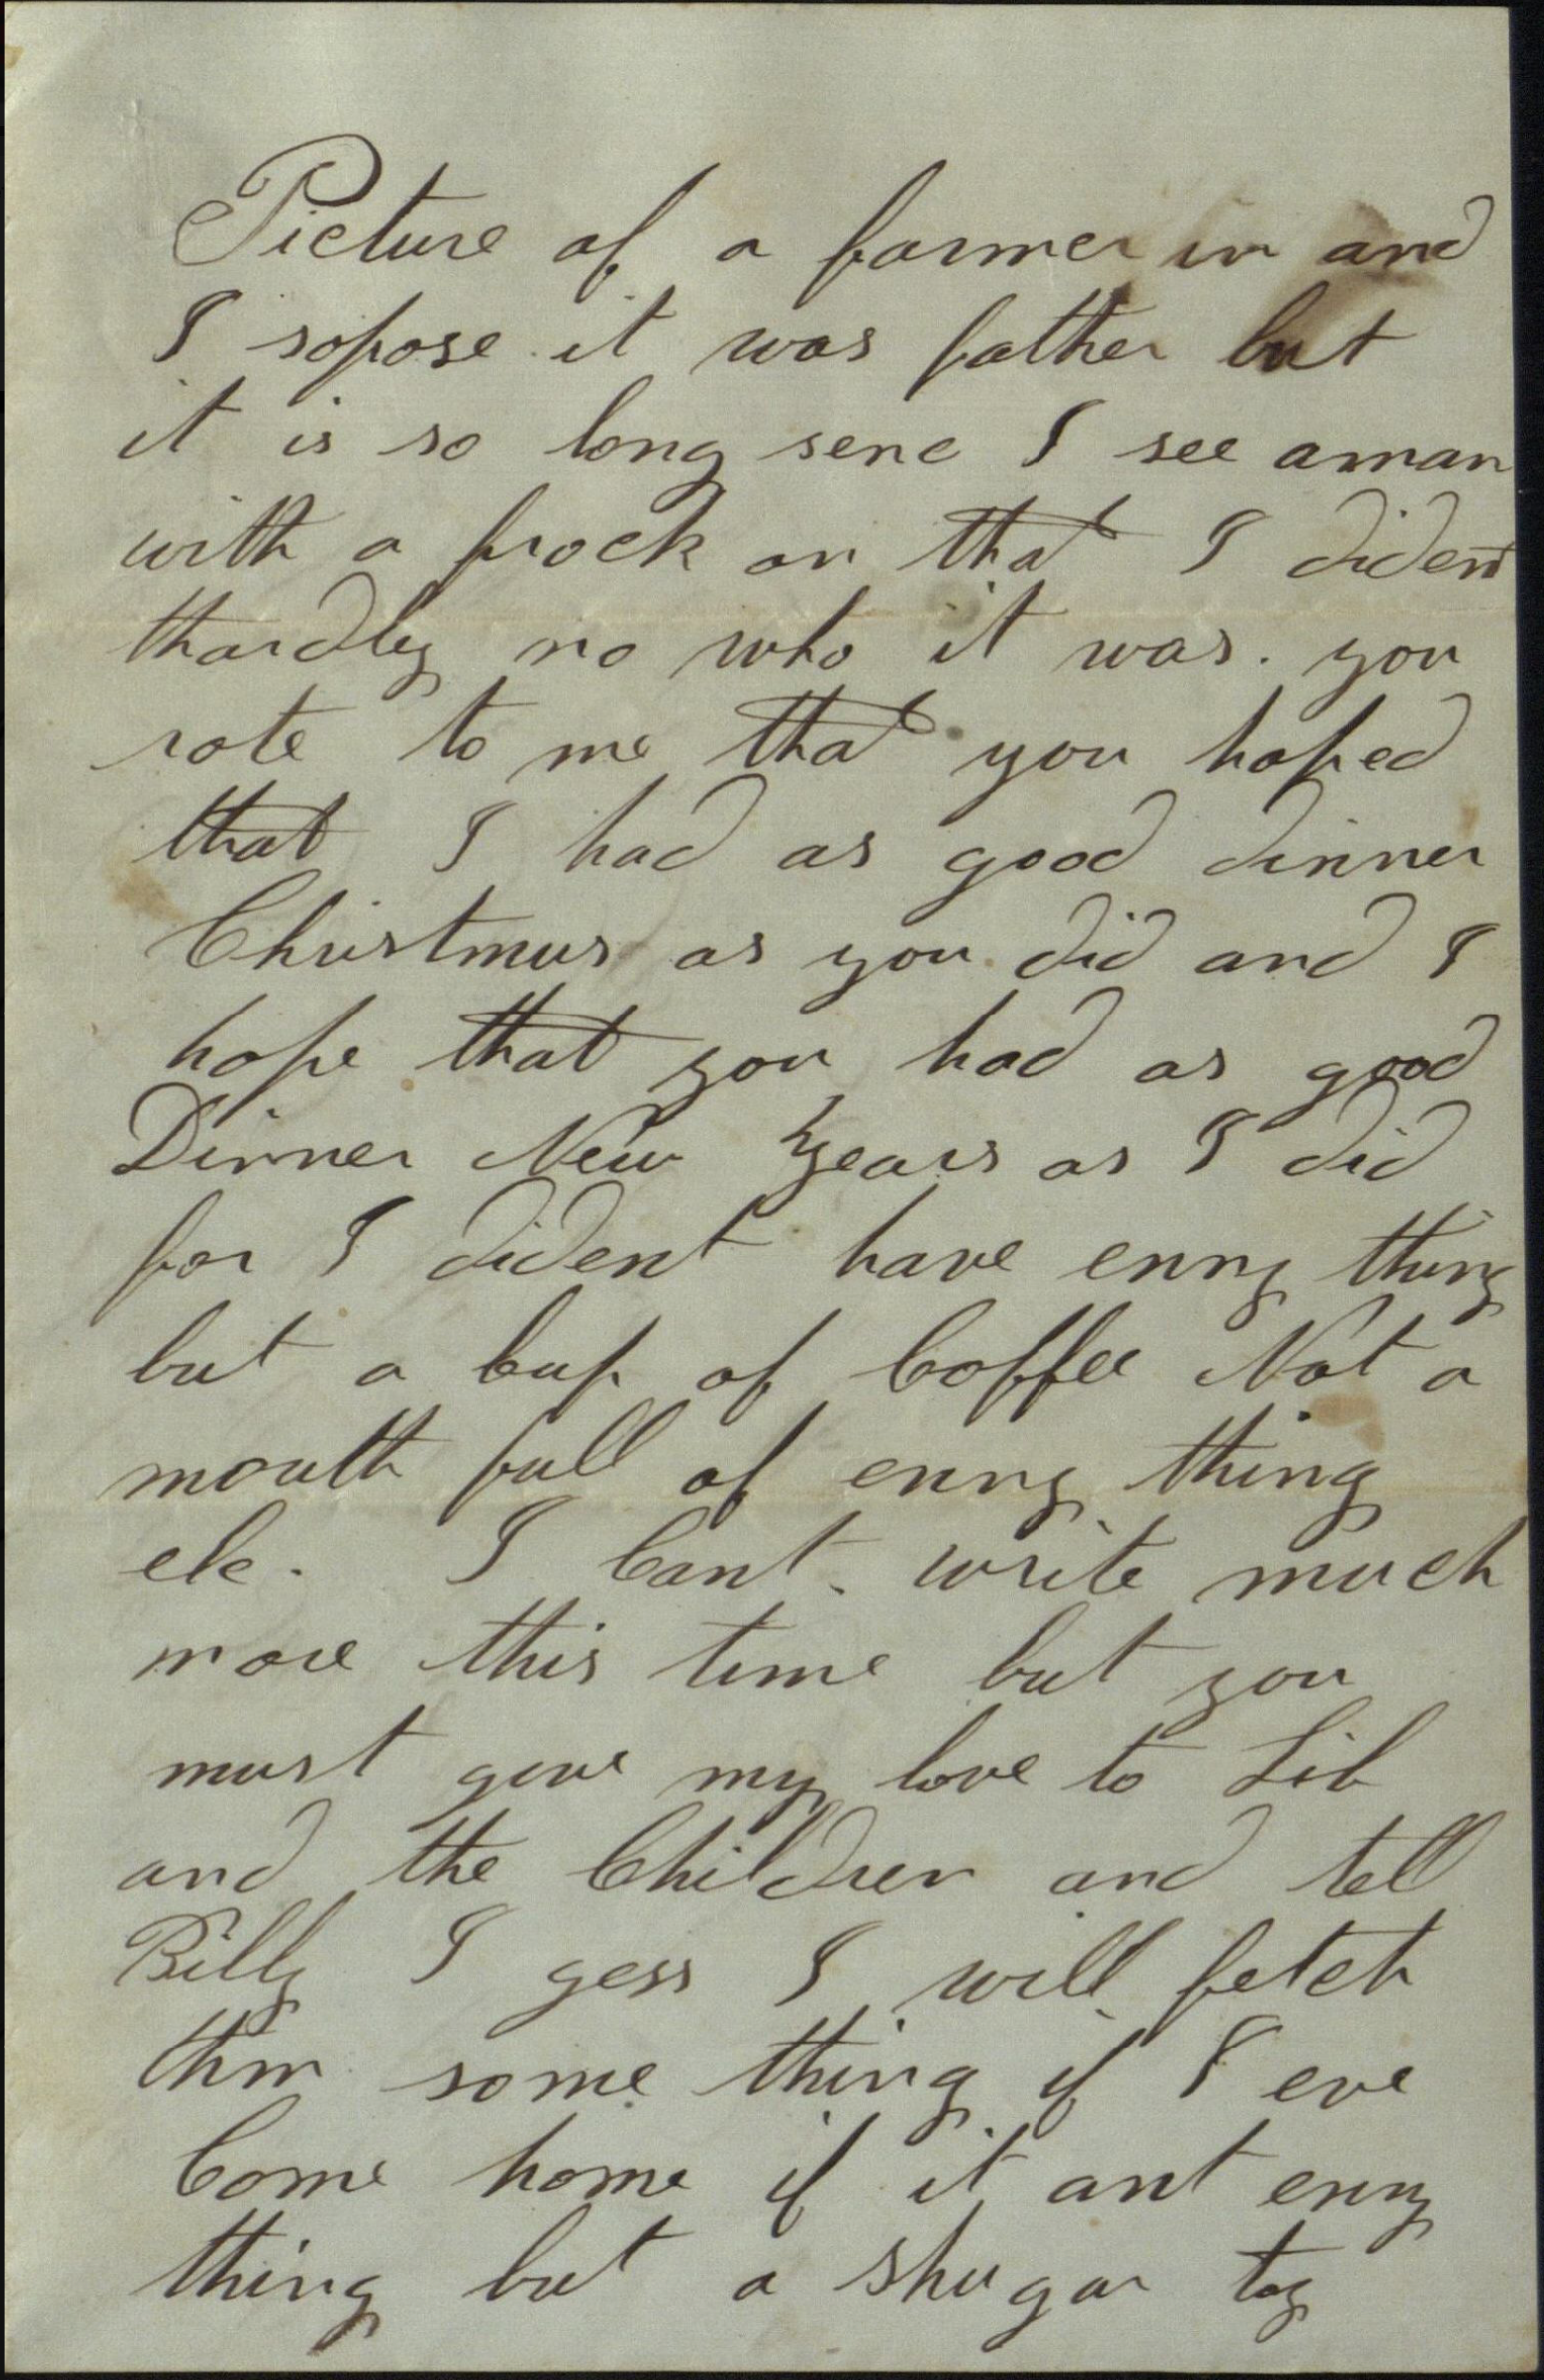 Picture of a farmer in and
I sopose it was father but
it is so long senc I see a man
with a frock on that I dident
thardly no who it was. you
rote to me that you hoped
that I had as good dinner
Christmus as you did and I
hope that you had as good
Dinner New Years as I did
for I dident have enny thing
but a Cup of Coffee Not a
mouth full of enny thing
els. I Cant write much
more this time but you
must give my love to Lib
and the Children and tell
Billy I gess I will fetch
thm some thing if I eve
Come home if it ant enny
thing but a shugar toy